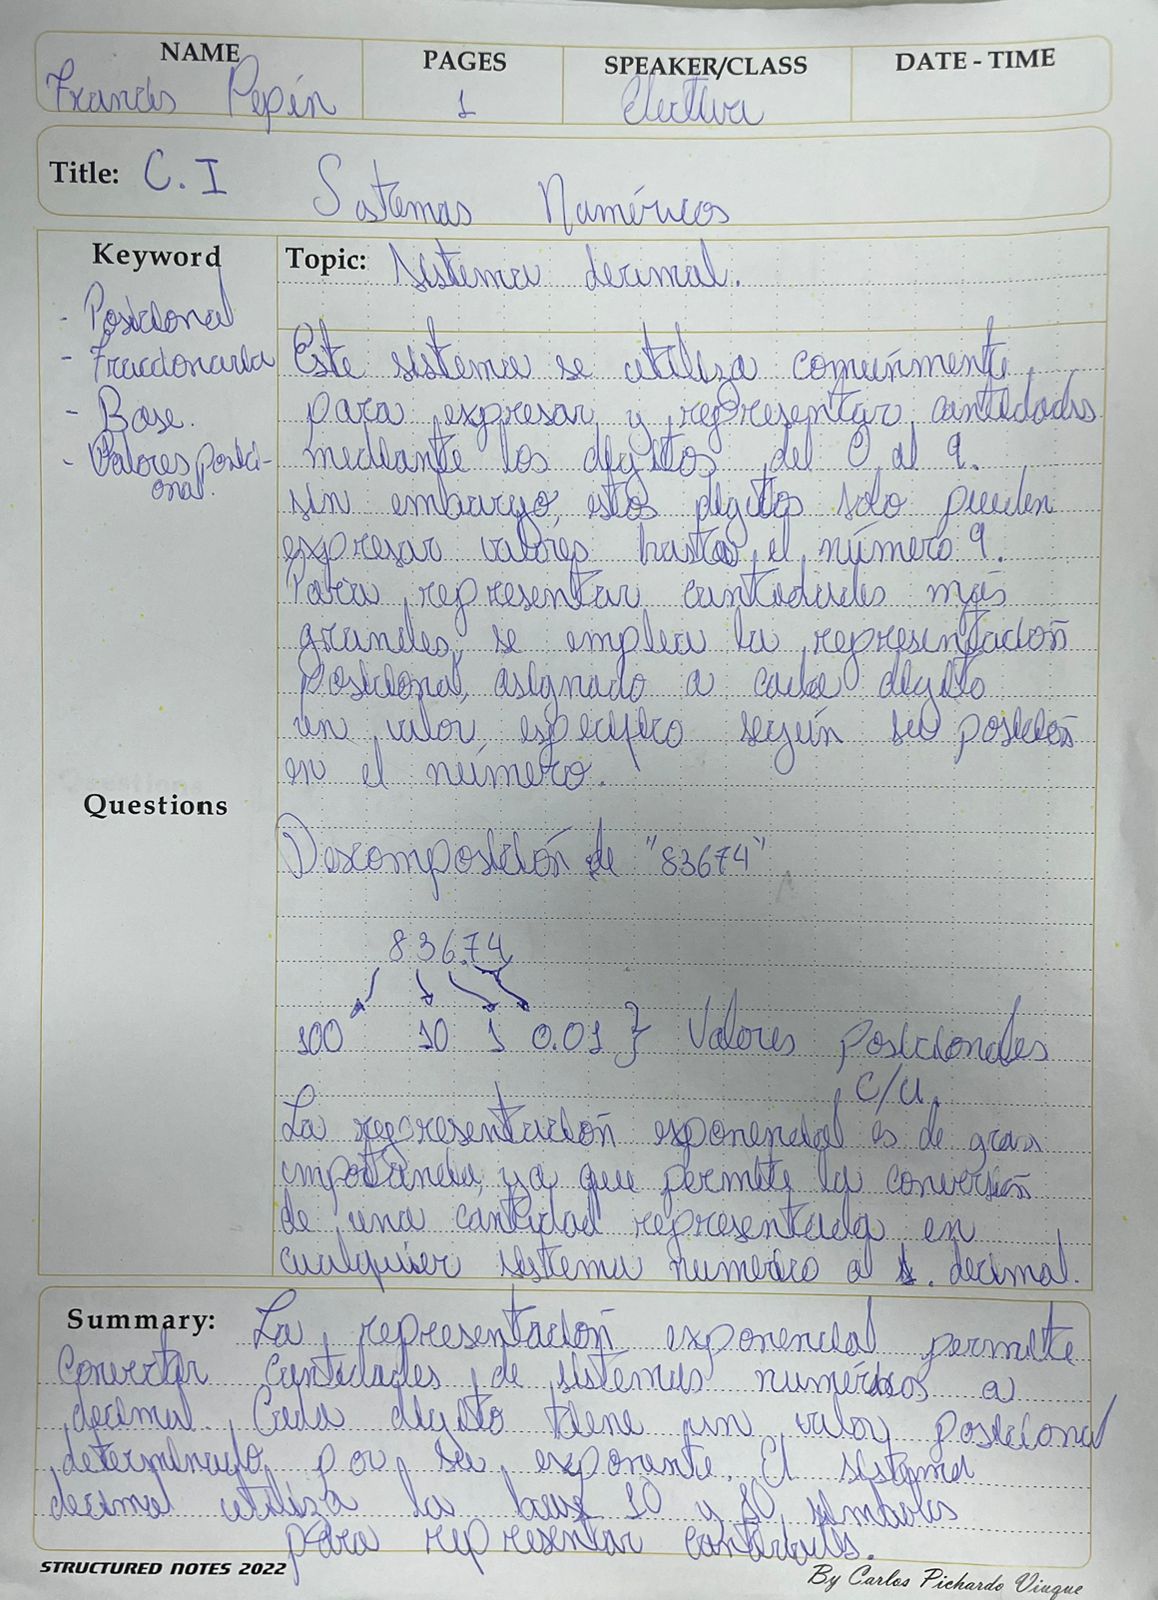 NAME PAGES SPEAKER/CLASS DATE - TIME
Francis Pepín 1 Electiva
Title: C.I Sistemas Numéricos
Keyword
- Posicional
- Fraccionaria
- Base.
- Valores posici-
onal.
Questions
Topic: Sistema decimal.
Este sistema se utiliza comúnmente
para expresar y representar cantidades
mediante los dígitos del 0 al 9.
sin embargo, estos dígitos solo pueden
expresar valores hasta el número 9.
Para representar cantidades más
grandes, se emplea la representación
Posicional, asignado a cada dígito
un valor específico según su posición
en el número.
Descomposición de "83674"
836.74
100 10 1 0.01 } Valores posicionales
c/u.
La representación exponencial es de gran
importancia, ya que permite la conversión
de una cantidad representada en
cualquier sistema numérico al s. decimal.
Summary: La representación exponencial permite
Convertir cantidades de sistemas numéricos a
decimal. Cada dígito tiene un valor posicional
determinado por su exponente. El sistema
decimal utiliza la base 10 y 10 símbolos
para representar cantidades.
STRUCTURED NOTES 2022
By Carlos Pichardo Viuque